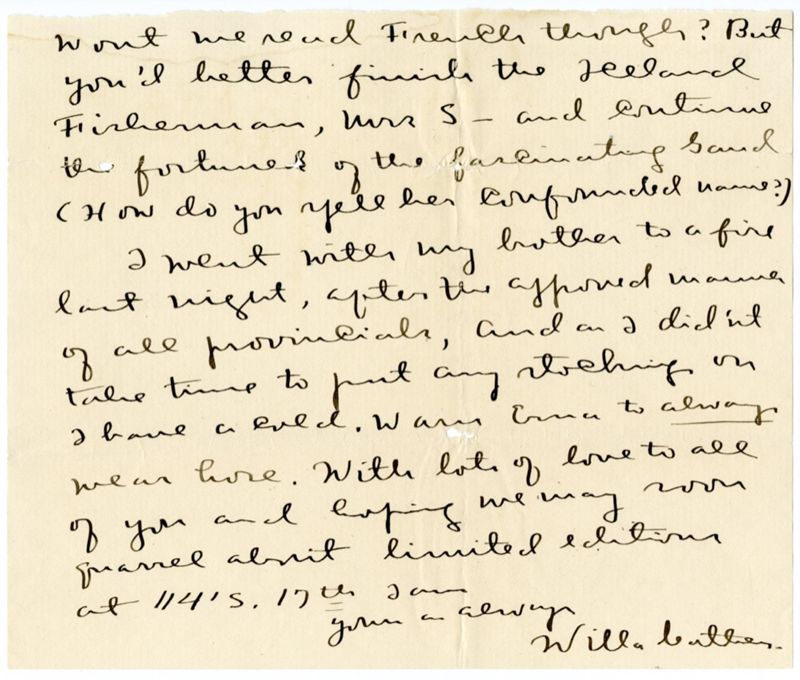 Wont we read French though? But
you'd better finish the Iceland
Fisherman, Mrs S – and continue
the fortunes of the fascinating Gaud
(How do you spell her confounded name?)
I went with my brother to a fire
last night, after the approved manner
of all provincials, and as I did'nt
take time to put any stockings on
I have a cold. Warn Erna to always
wear hose. With lots of love to all
of you and hoping we may soon
quarrel about limited editions
at 114 S. 17th I am
yours as always
Willa Cather.